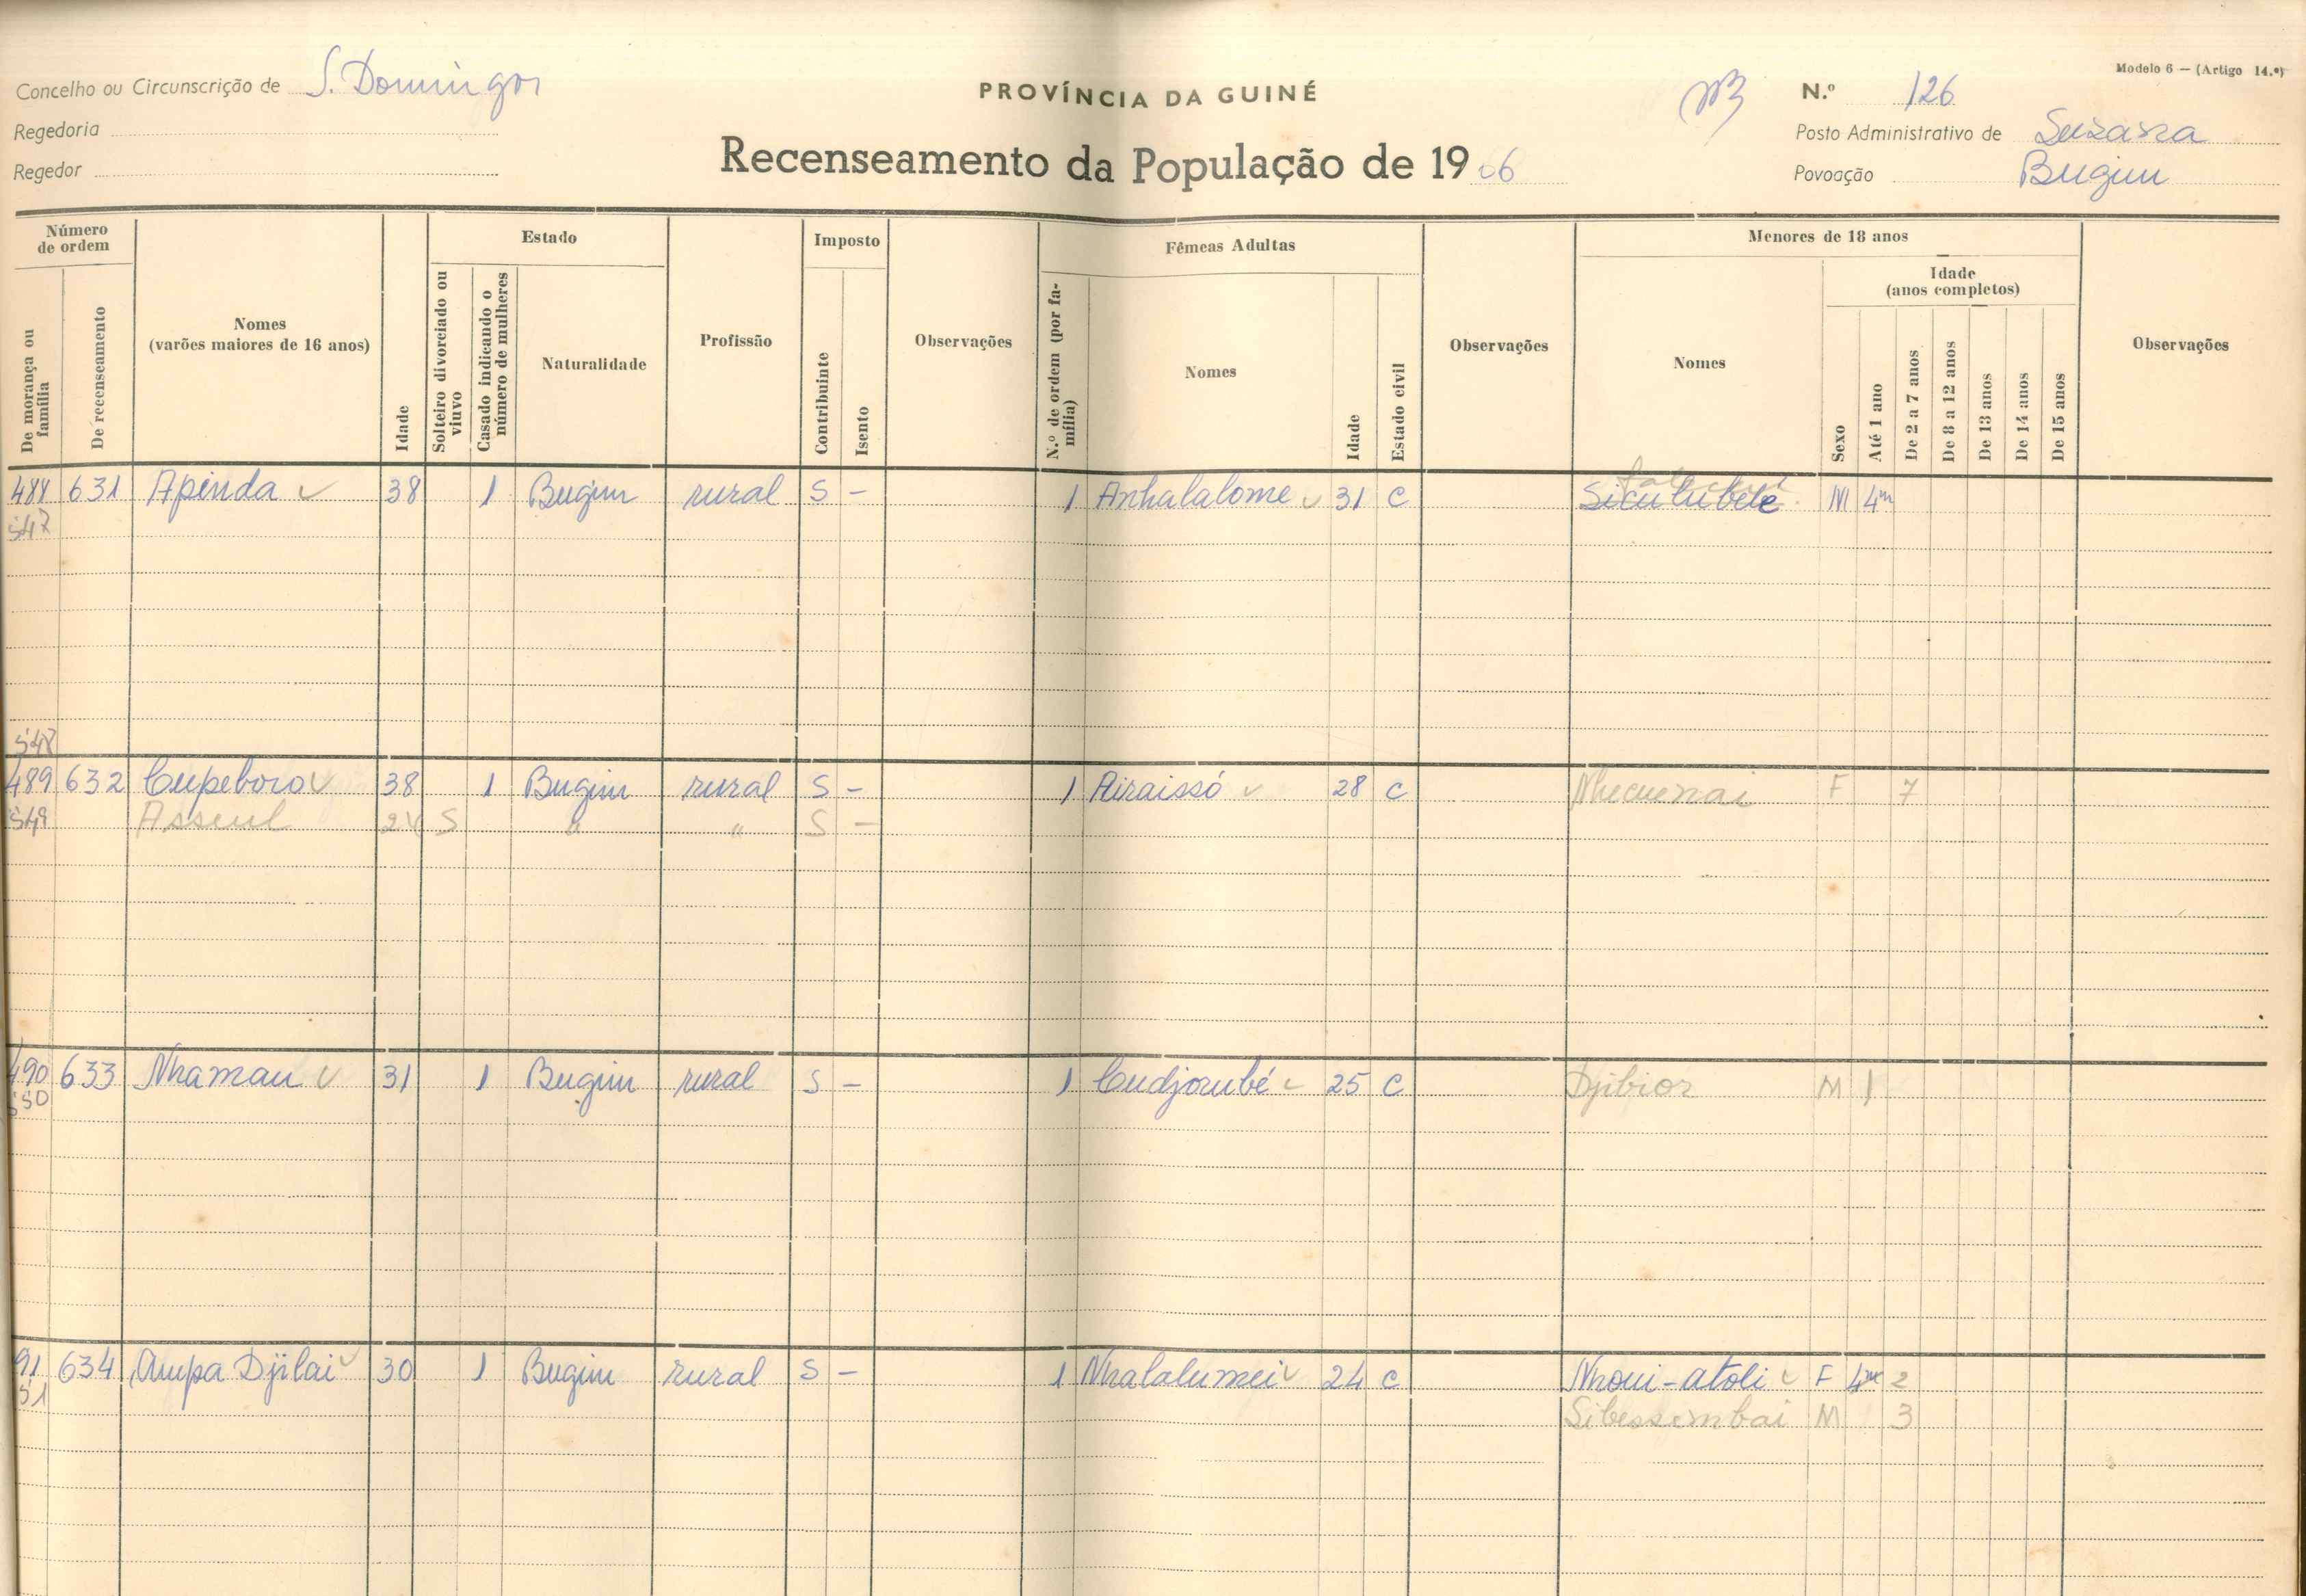 Modelo 6 — (Artigo 14.º)
Concelho ou Circunscrição de S. Domingos
PROVÍNCIA DA GUINÉ
N.º 126
Regedoria
Posto Administrativo de Suzana
Regedor
Recenseamento da População de 1966
Povoação Bugim
Número de ordem
Estado
Imposto
Fêmeas Adultas
Menores de 18 anos
Idade (anos completos)
De morança ou família
De recenseamento
Nomes (varões maiores de 16 anos)
Idade
Solteiro divorciado ou viuvo
Casado indicando o número de mulheres
Naturalidade
Profissão
Contribuinte
Isento
Observações
N.º de ordem (por família)
Nomes
Idade
Estado civil
Observações
Nomes
Sexo
Até 1 ano
De 2 a 7 anos
De 8 a 12 anos
De 13 anos
De 14 anos
De 15 anos
Observações
488 631 Apinda 38 1 Bugim rural S - 1 Anhalalome 31 C Siculubele M 4m
547
548
489 632 Cupeboro 38 1 Bugim rural S - 1 Airaissó 28 C Nhecuenai F 7
549 Asseul 24 S " " S -
490 633 Nhamau 31 1 Bugim rural S - 1 Cudjorubé 25 C Djibior M 1
550
91 634 Aupa Djilai 30 1 Bugim rural S - 1 Nhalalumei 24 C Nhoui-atoli F 4m 2
51 Sibessembai M 3